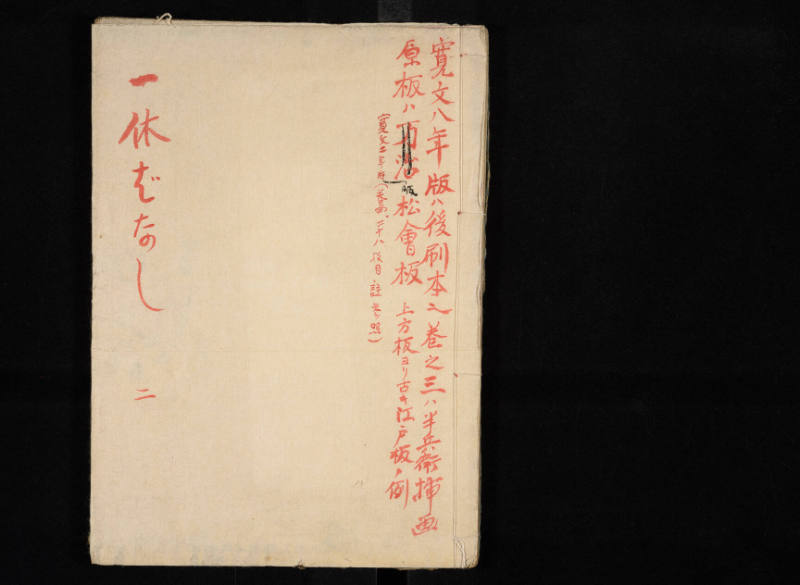 寛文八年版ハ後刷本 巻之三ハ半兵衛挿画
原板ハ 版 松會板 上方板ヨリ古キ江戸板ノ例
寛文二年 二十八 後目 註参照)
一休ばなし 二